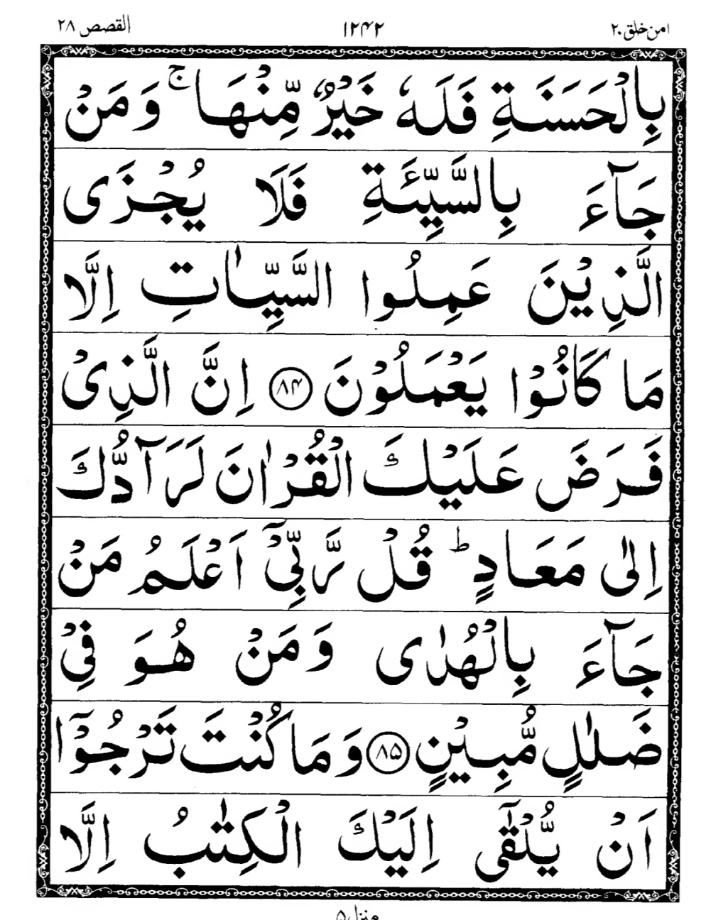 امن خلق ٢٠ ١٢٤٢ القصص ٢٨
بِالْحَسَنَةِ فَلَهٗ خَيْرٌ مِّنْهَا ۚ وَمَنْ
جَآءَ بِالسَّيِّئَةِ فَلَا يُجْزَى
الَّذِيْنَ عَمِلُوا السَّيِّاٰتِ اِلَّا
مَا كَانُوْا يَعْمَلُوْنَ ﴿٨٤﴾ اِنَّ الَّذِىْ
فَرَضَ عَلَيْكَ الْقُرْاٰنَ لَرَآدُّكَ
اِلٰى مَعَادٍ ؕ قُلْ رَّبِّىْٓ اَعْلَمُ مَنْ
جَآءَ بِالْهُدٰى وَمَنْ هُوَ فِىْ
ضَلٰلٍ مُّبِيْنٍ ﴿٨٥﴾ وَمَا كُنْتَ تَرْجُوْٓا
اَنْ يُّلْقٰٓى اِلَيْكَ الْكِتٰبُ اِلَّا
منزل ٥